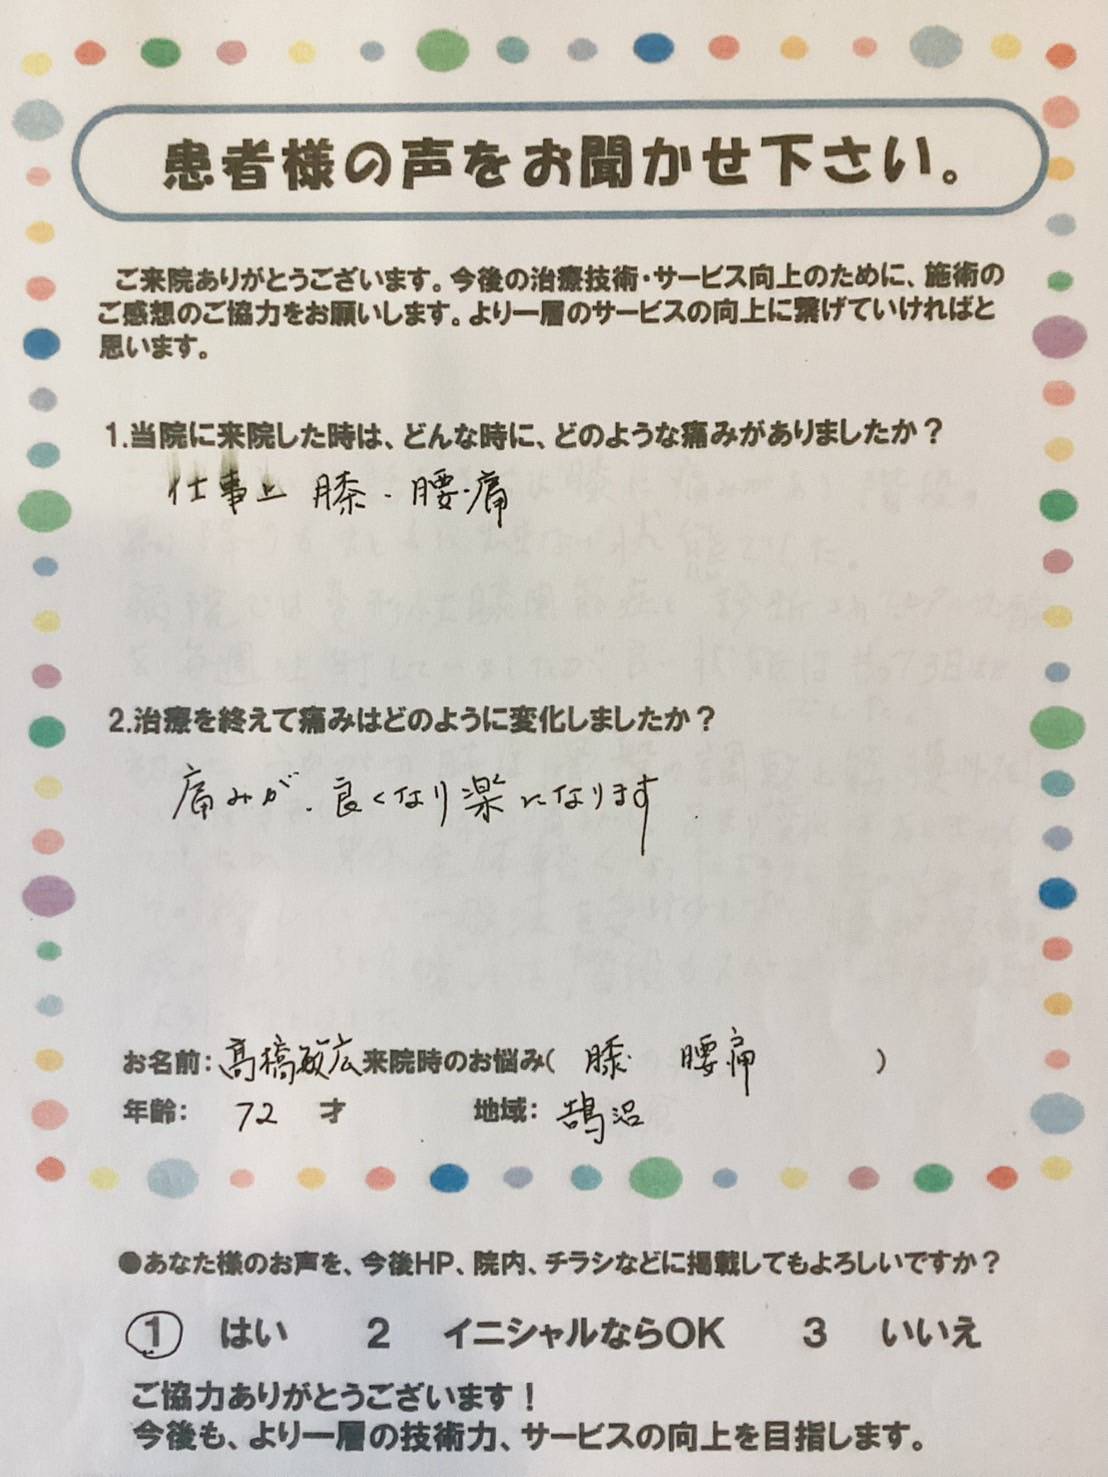 患者様の声をお聞かせ下さい。
ご来院ありがとうございます。今後の治療技術・サービス向上のために、施術の
ご感想のご協力をお願いします。より一層のサービスの向上に繋げていければと
思います。
1.当院に来院した時は、どんな時に、どのような痛みがありましたか?
仕事上 膝・腰・痛
2.治療を終えて痛みはどのように変化しましたか?
痛みが、良くなり楽になります
お名前:髙橋敏広 来院時のお悩み( 膝・ 腰痛 )
年齢: 72 才 地域: 鵠沼
●あなた様のお声を、今後HP、院内、チラシなどに掲載してもよろしいですか?
1 はい 2 イニシャルならOK 3 いいえ
ご協力ありがとうございます!
今後も、より一層の技術力、サービスの向上を目指します。